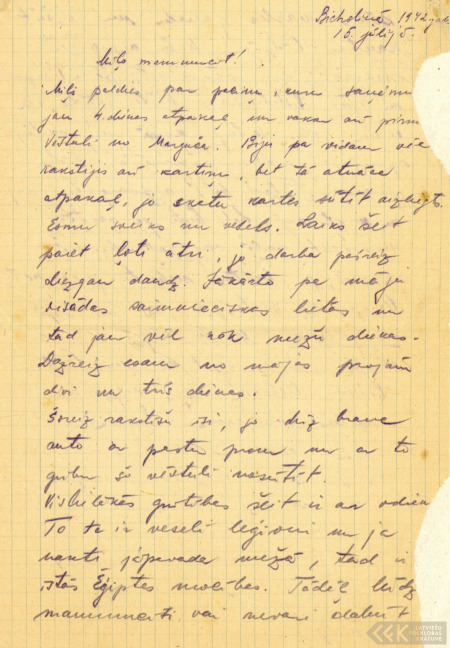 1942. gada
15. jūlijā.
Mīļo mammucīt!
Mīļš paldies par paciņu, kuru saņēmu
jau 4 dienas atpakaļ un vakar arī pirmo
vēstuli no Marģera. Biju pa visam vēl
rakstījis arī kartiņu, bet tā atnāca
atpakaļ, jo skatu kartes sūtīt aizliegts.
Esmu sveiks un vesels. Laiks šeit
paiet ļoti ātri, jo darba pašreiz
diezgan daudz. Jākārto pa māju
visādas saimnieciskas lietas un
tad jau vēl nāk mežu dienas.
Dažreiz esam no mājas projām
divi un trīs dienas.
Šoreiz rakstīšu īsi, jo drīz brauc
auto ar pastu prom un ar to
gribu šo vēstuli nosūtīt.
Vislielākās grūtības šeit ir ar odiem
To te ir veseli leģioni un ja
nakti jāpavada mežā, tad ir
īstās Ēģiptes mocības. Tādēļ lūdz
mammucīti vai nevari dabūt
LATVIEŠU
FOLKLORAS
KRĀTUVE